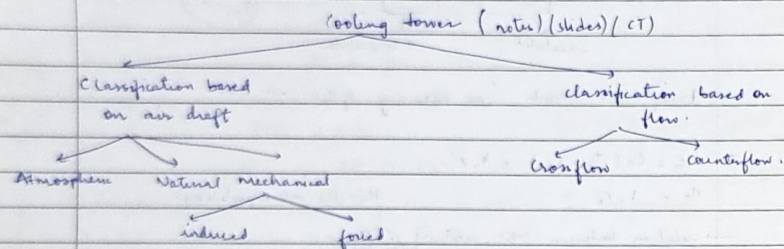 Cooling tower (notes) (slides) (CT)
Classification based
on air draft
classification based on
flow.
Atmospheric Natural Mechanical
Crossflow counterflow.
induced forced